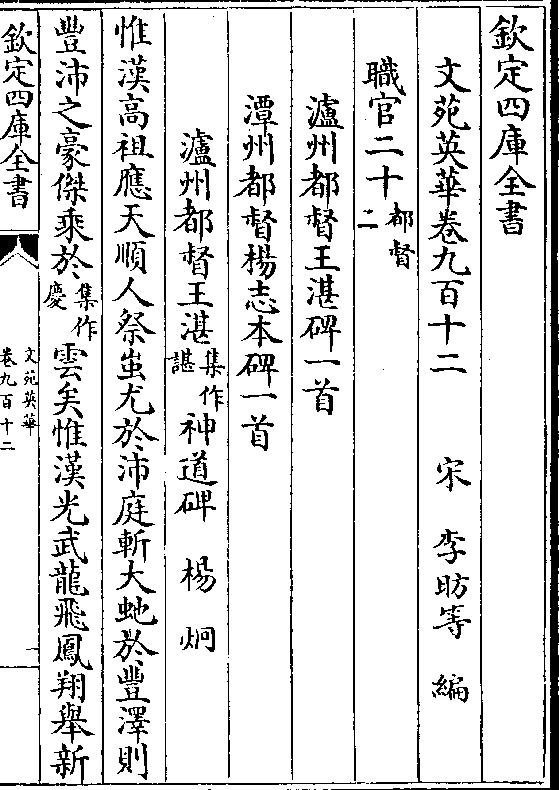 欽定四庫全書
文苑英華卷九百十二　宋　李昉等　編
職官二十都督二
瀘州都督王湛碑一首
潭州都督楊志本碑一首
瀘州都督王湛集作諶神道碑　楊炯
惟漢高祖應天順人祭蚩尤於沛庭斬大虵於豐澤則
豐沛之豪傑乘於集作慶雲矣惟漢光武龍飛鳳翔舉新
欽定四庫全書
文苑英華
卷九百十二
一